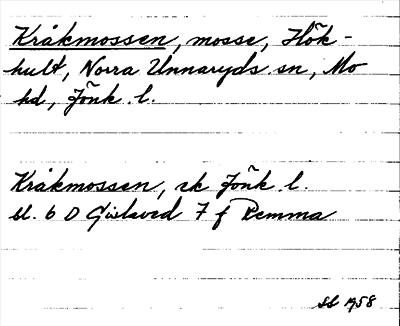 Kråkmossen, mosse, Hök-
hult, Norra Unnaryds sn, Mo
hd, Jönk. l.
Kråkmossen, ek Jönk. l.
bl. 6 D Gislaved 7 f Remma
1958